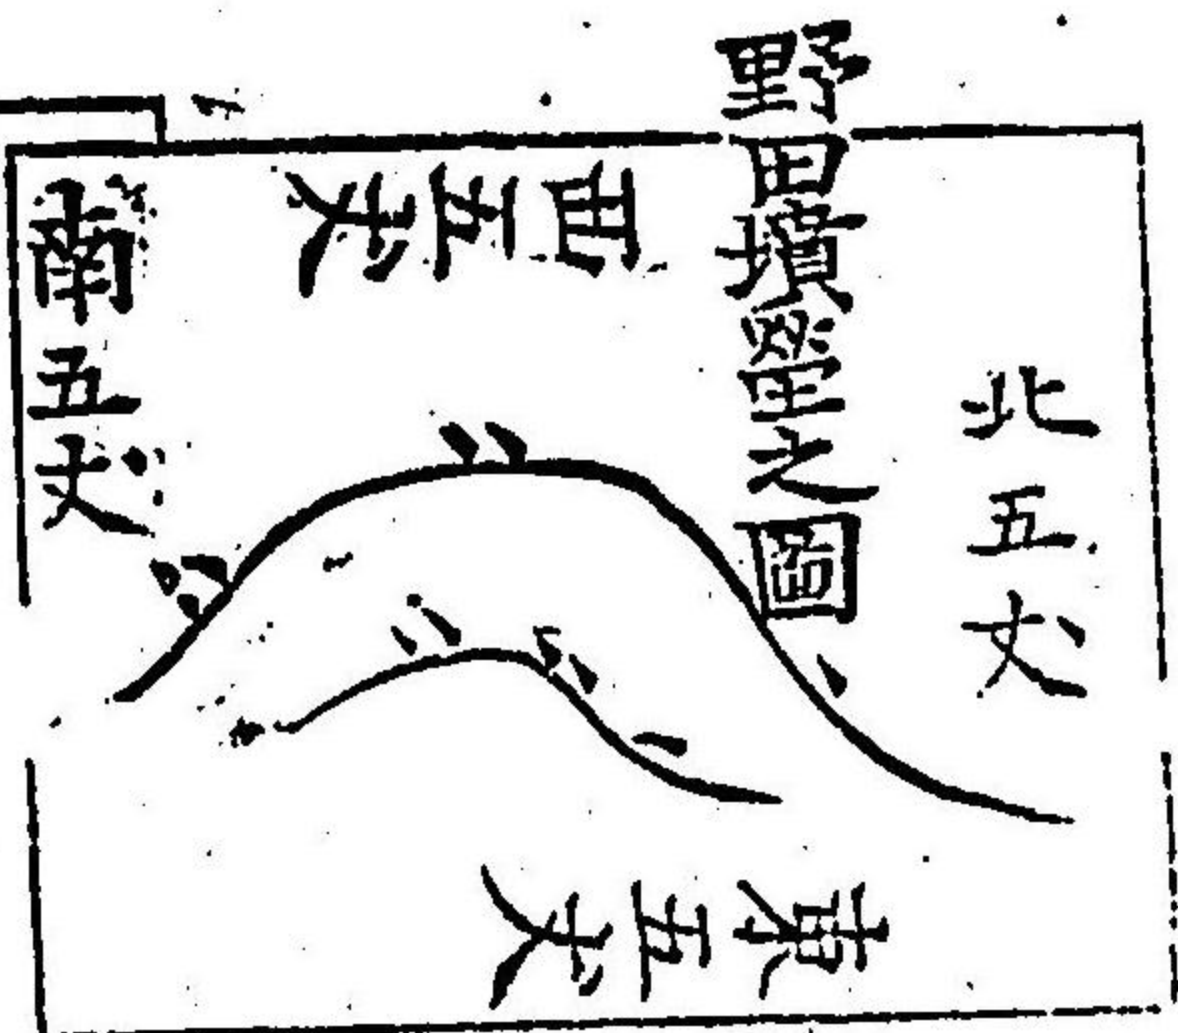 野田墳塋之圖
北五丈
西五丈
南五丈
東五丈